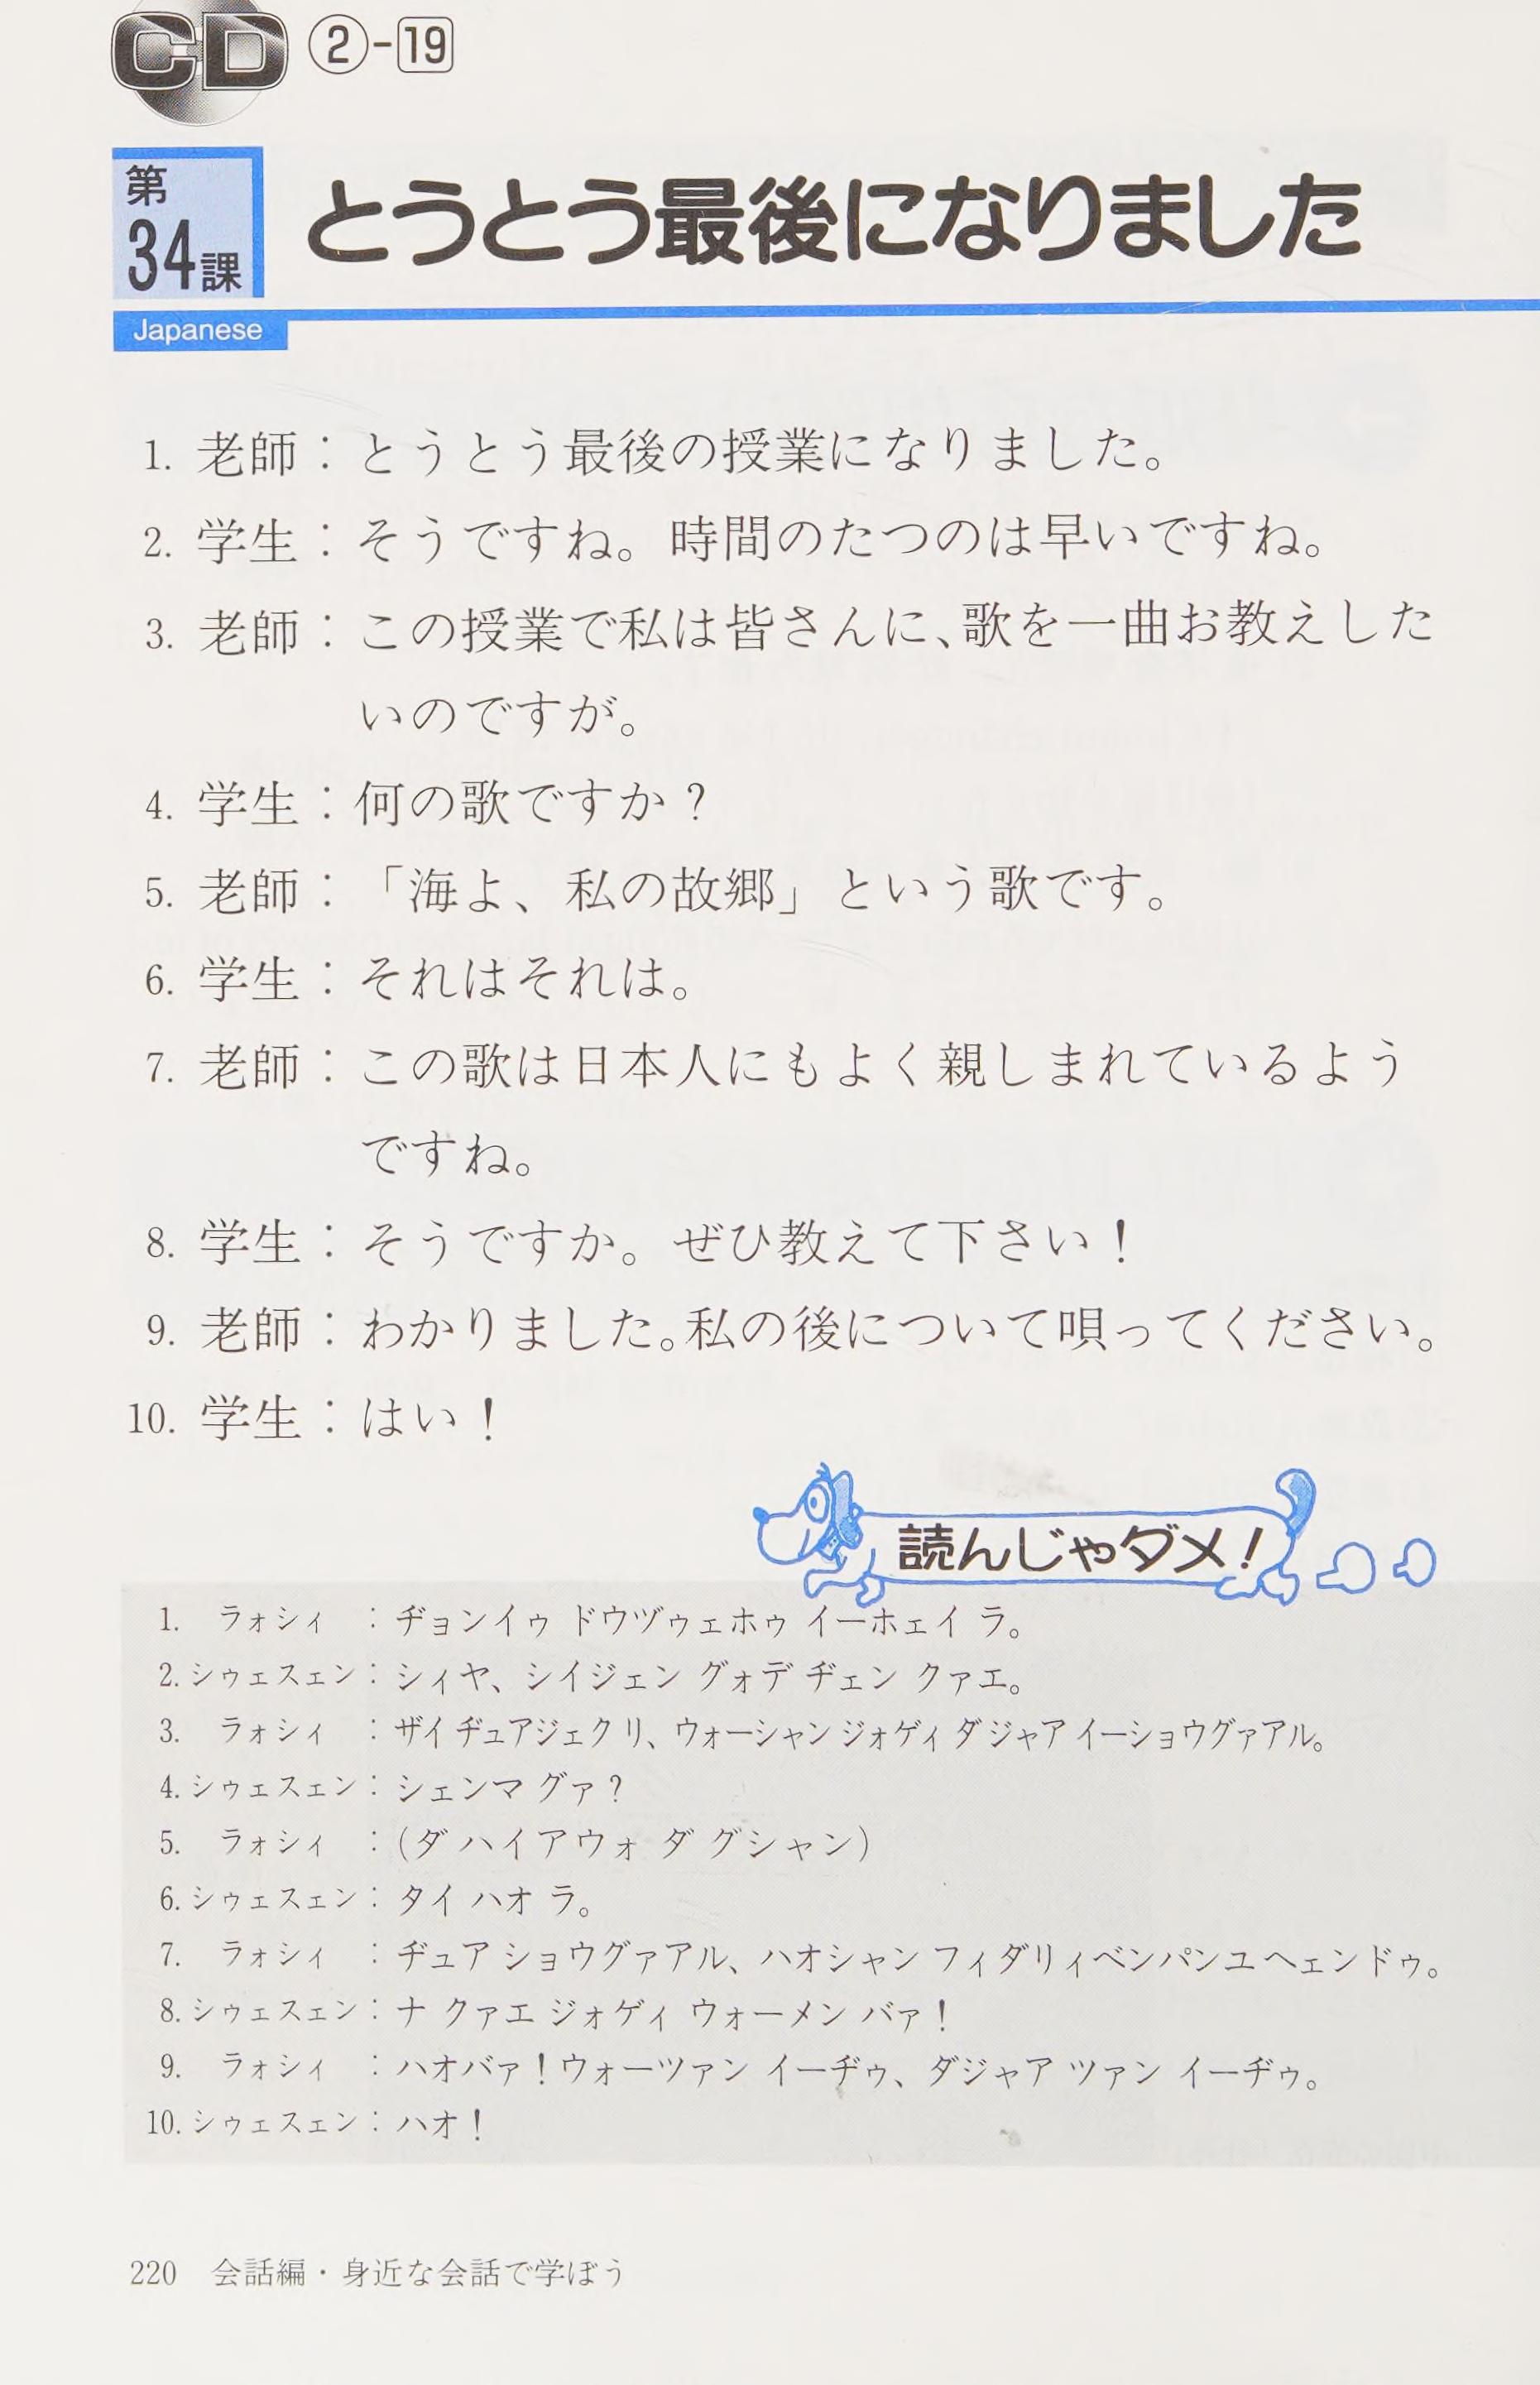 CD ②-19
第34課 とうとう最後になりました
Japanese
1. 老師：とうとう最後の授業になりました。
2. 学生：そうですね。時間のたつのは早いですね。
3. 老師：この授業で私は皆さんに、歌を一曲お教えした
いのですが。
4. 学生：何の歌ですか？
5. 老師：「海よ、私の故郷」という歌です。
6. 学生：それはそれは。
7. 老師：この歌は日本人にもよく親しまれているよう
ですね。
8. 学生：そうですか。ぜひ教えて下さい！
9. 老師：わかりました。私の後について唄ってください。
10. 学生：はい！
読んじゃダメ！
1. ラォシィ：ヂョンイゥ ドウヅゥェホゥ イーホェイ ラ。
2. シゥェスェン：シィヤ、シイジェン グォデ ヂェン クァエ。
3. ラォシィ：ザイ ヂュアジェクリ、ウォーシャン ジォゲィ ダジャア イーショウグァアル。
4. シゥェスェン：シェンマ グァ？
5. ラォシィ：（ダ ハイアウォ ダ グシャン）
6. シゥェスェン：タイ ハオ ラ。
7. ラォシィ：ヂュア ショウグァアル、ハオシャン フィダリィベンパンユ ヘェンドゥ。
8. シゥェスェン：ナ クァエ ジォゲィ ウォーメン バァ！
9. ラォシィ：ハオバァ！ウォーツァン イーヂゥ、ダジャア ツァン イーヂゥ。
10. シゥェスェン：ハオ！
220 会話編・身近な会話で学ぼう